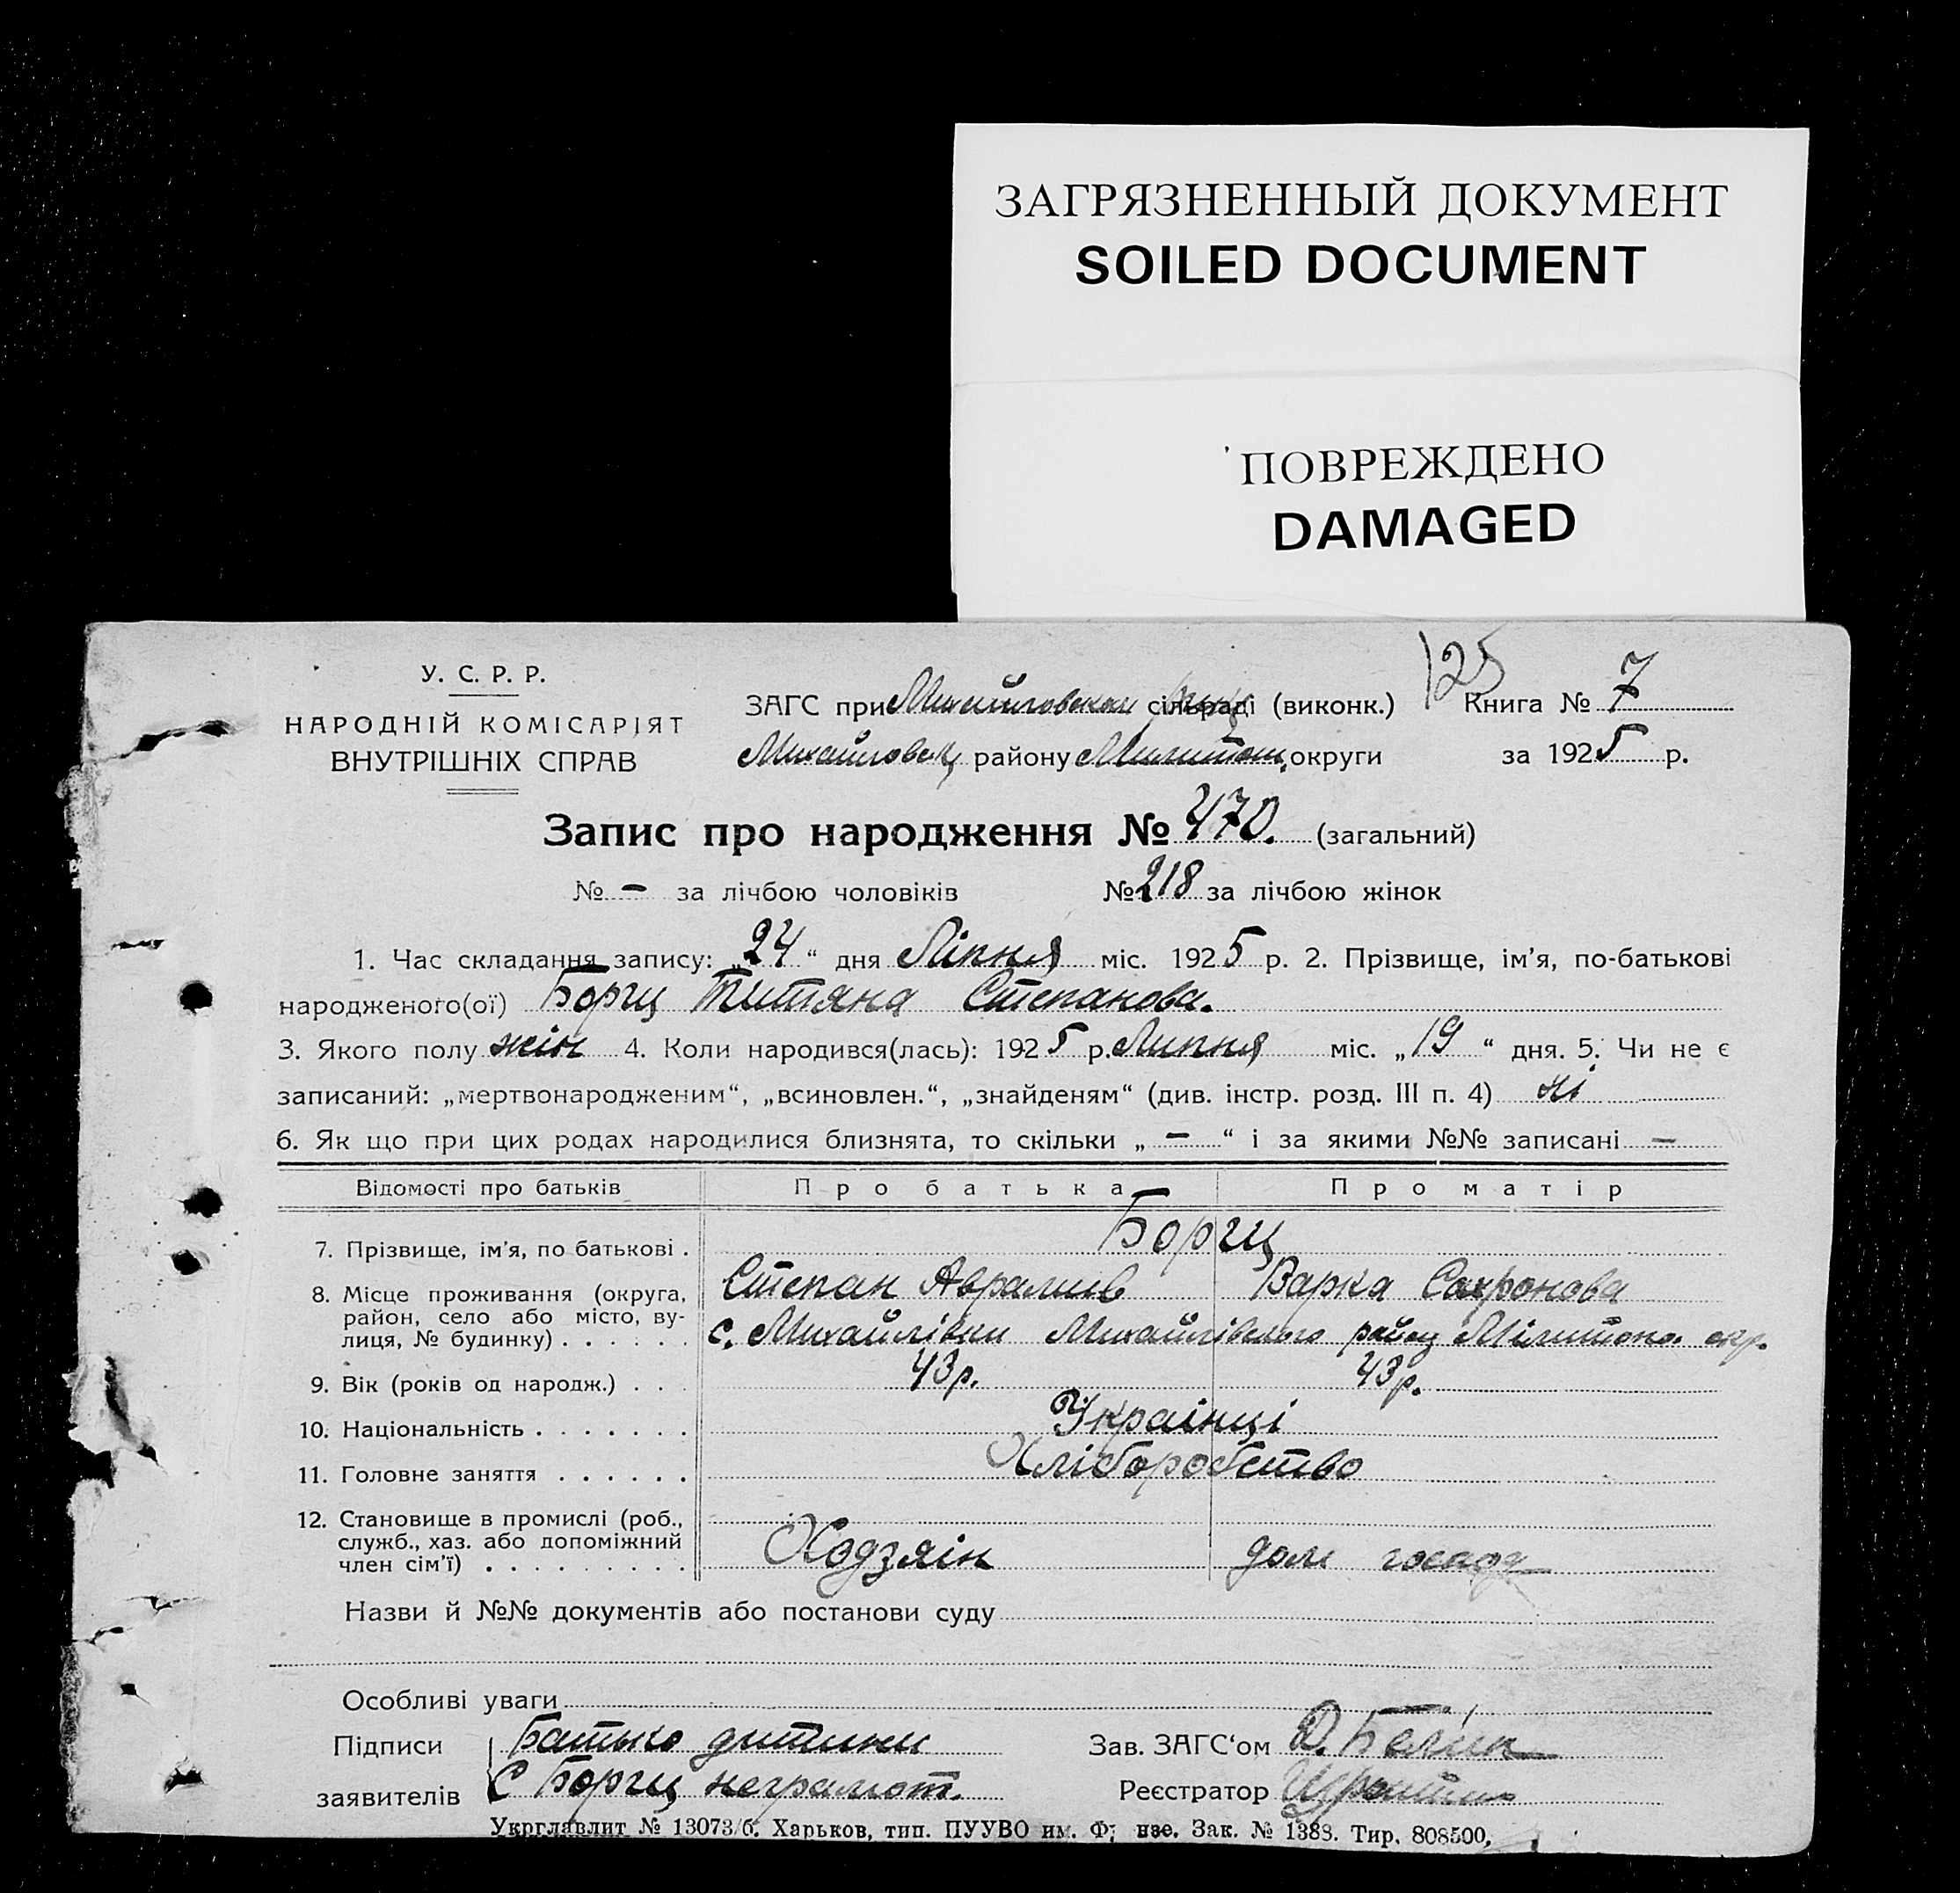 ЗАГРЯЗНЕННЫЙ ДОКУМЕНТ
SOILED DOCUMENT
ПОВРЕЖДЕНО
DAMAGED
125
У. С. Р. Р.
НАРОДНІЙ КОМІСАРІЯТ
ВНУТРІШНІХ СПРАВ
ЗАГС при сільраді (виконк.) Книга № 7
району округи за 1925 р.
Запис про народження № 470. (загальний)
№ — за лічбою чоловіків № 218 за лічбою жінок
1. Час складання запису: „24“ дня Ліпня міс. 1925 р. 2. Прізвище, ім’я, по-батькові
народженого(ої) Боргц Титяна Степанова.
3. Якого полу жін 4. Коли народився(лась): 1925 р. Липня міс. „19“ дня. 5. Чи не є
записаний: „мертвонародженим“, „всиновлен.“, „знайденям“ (див. інстр. розд. III п. 4) ні
6. Як що при цих родах народилися близнята, то скільки „—“ і за якими №№ записані —
Відомості про батьків Про батька Про матір
7. Прізвище, ім’я, по батькові . Боргц
Степан Аврамів Варка Сахронова
8. Місце проживання (округа,
район, село або місто, ву-
лиця, № будинку) . . . . . . с. Михайлівки Михайлівського окр.
9. Вік (років од народж.) . . . 43р. 43р.
10. Національність . . . . . . . Українці
11. Головне заняття . . . . . . Хліборобство
12. Становище в промислі (роб.,
служб., хаз. або допоміжний
член сім’ї) . . . . . . . . . Ходзяін дом господ
Назви й №№ документів або постанови суду
Особливі уваги
Підписи Батько дитини Зав. ЗАГС‘ом Д. Белик
заявителів С Боргц неграмот. Реєстратор
Укрглавлит № 13073/б. Харьков, тип. ПУУВО им. Зак. № 1388. Тир. 808500.